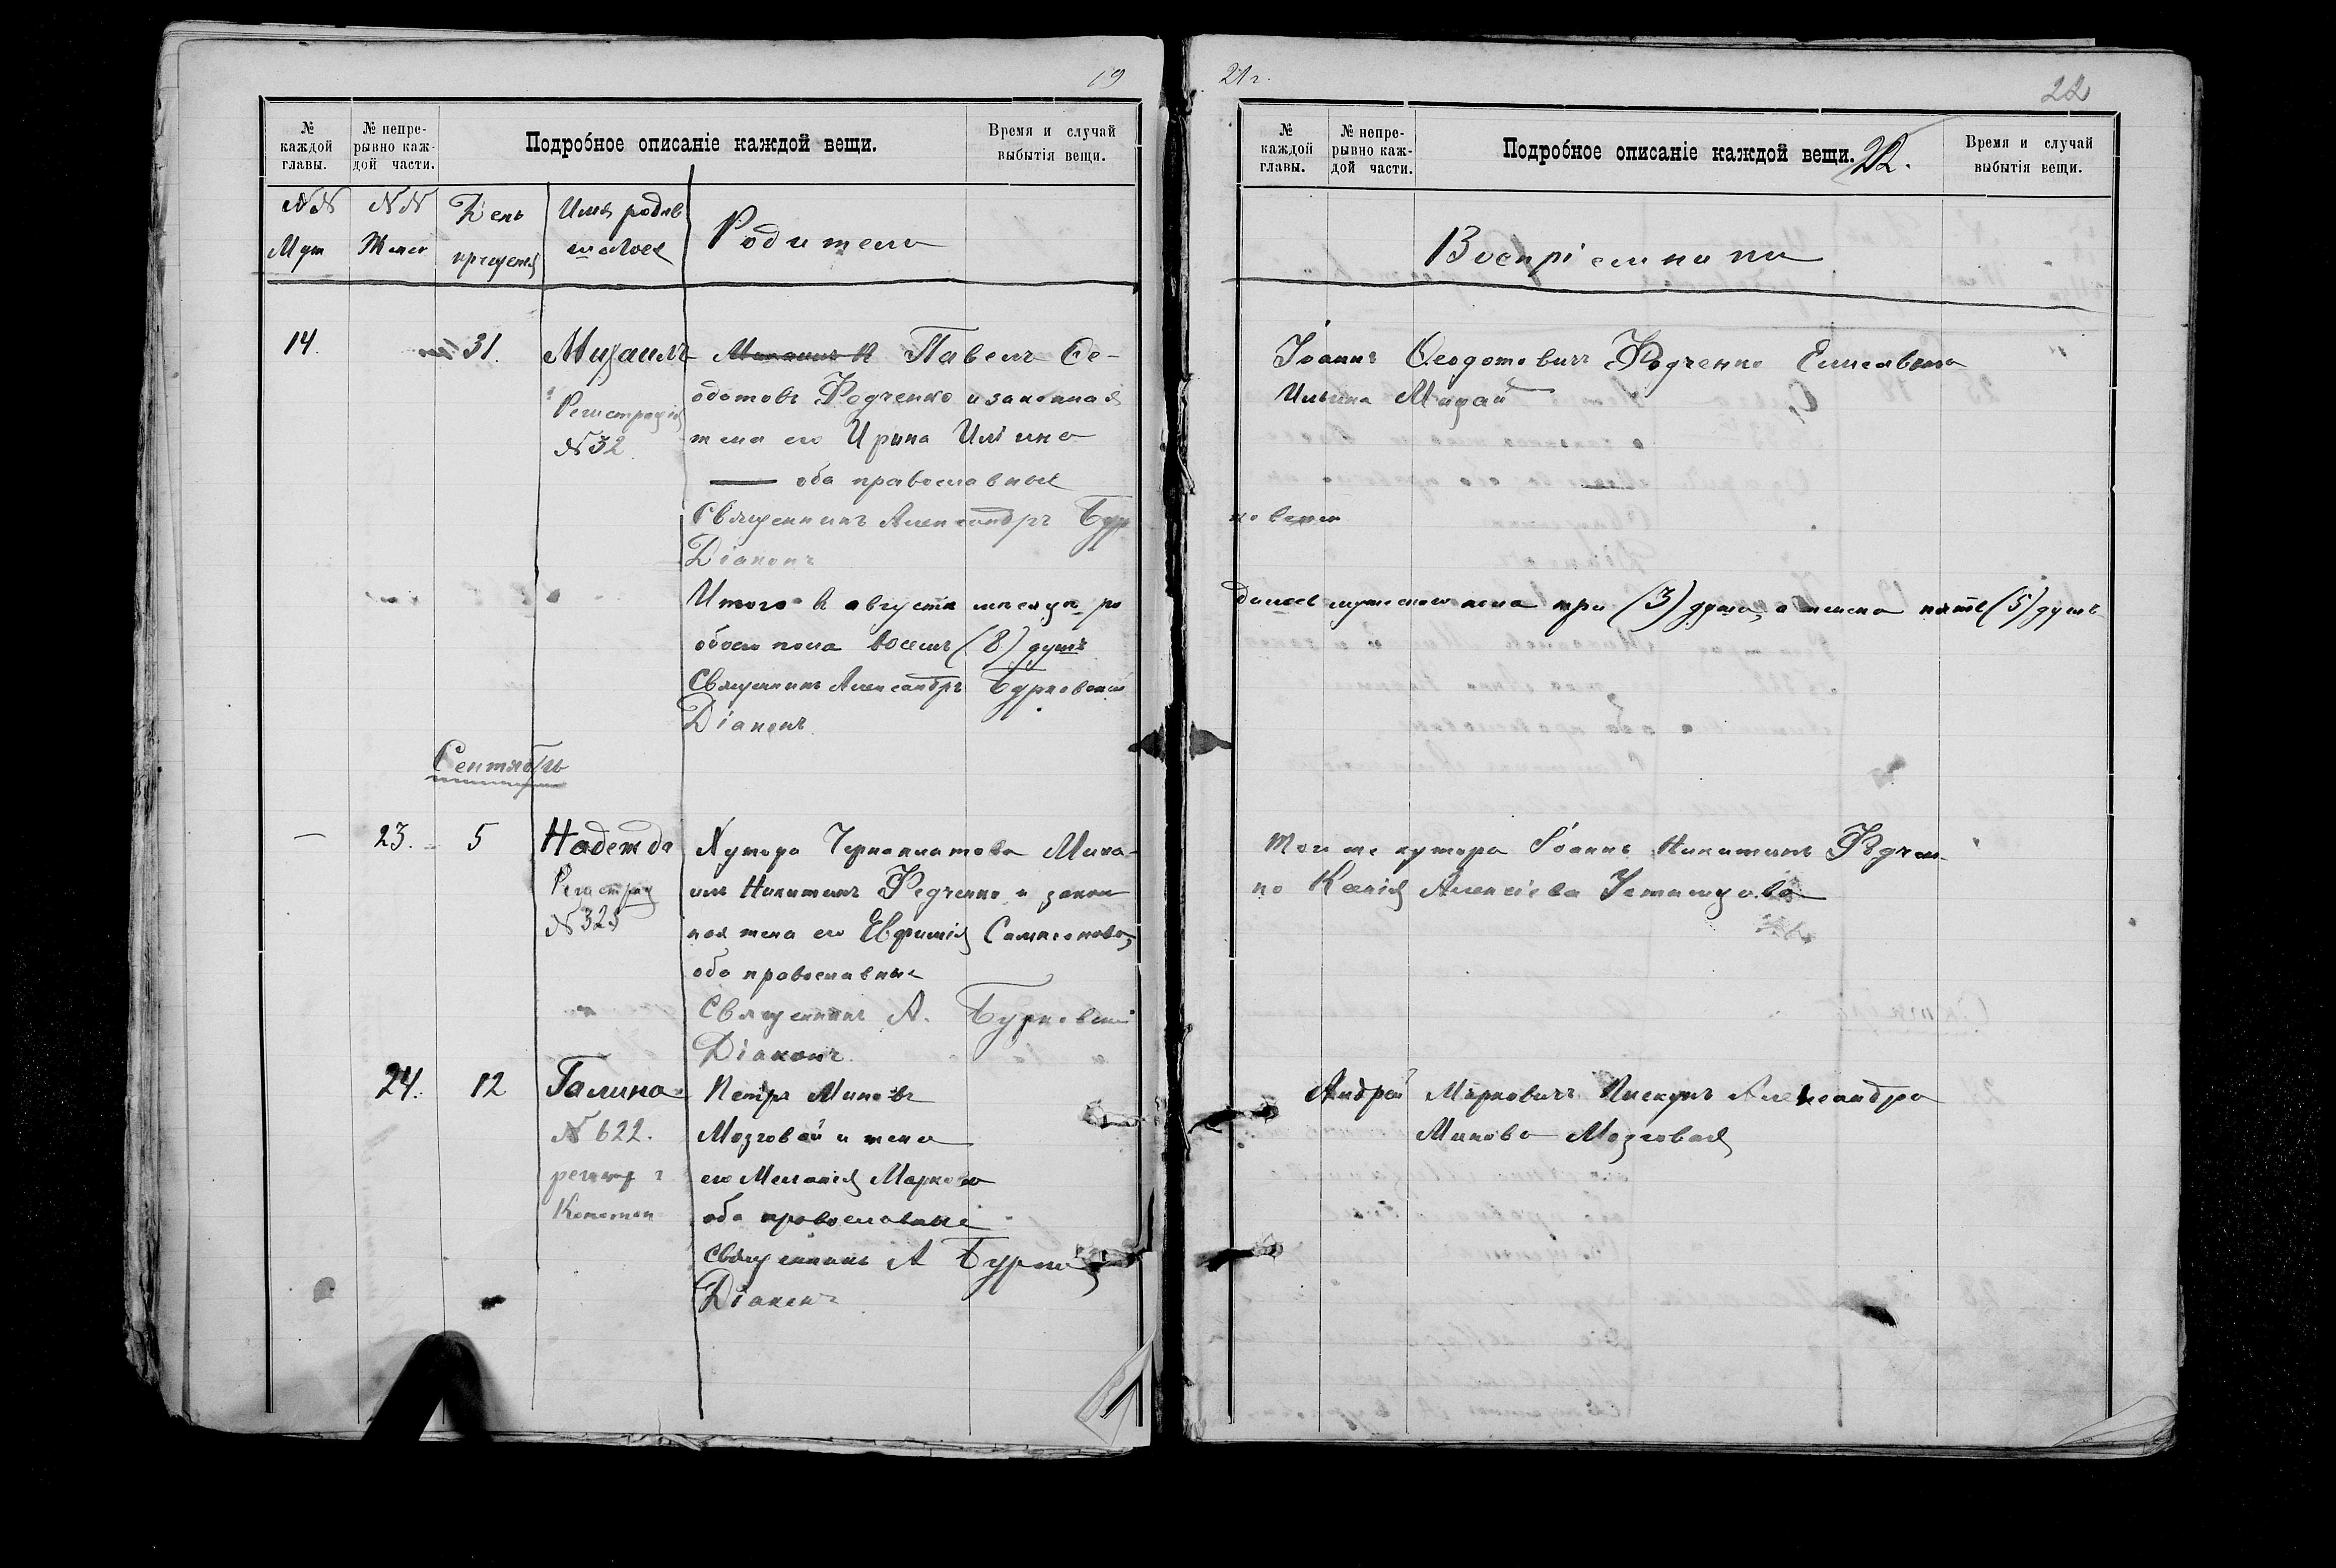 19
№ каждой главы.
№ непрерывно каждой части.
Подробное описаніе каждой вещи.
Время и случай выбытія вещи.
№№ Муж
№№ Жен
День крещенія
Имя родив
шагося
Родители
14.
31.
Михаилъ
Регистрація
№ 32
Павелъ Ѳе-
одотовъ Федченко и законная
жена его Ирина Ильина
оба православные
Священникъ Александръ Бур
Діаконъ
Итого въ августѣ месяцѣ ро
обоего пола восемь (8) душъ
Священникъ Александръ Бурковскій
Діаконъ
Сентябрь
—
23.
5
Надежда
№ 325
Хутора Миха-
илъ Никитинъ Федченко и закон
ная жена его Евфимія Самсонова,
оба православные
Священникъ А. Бурковскій
Діаконъ
24.
12
Галина
№ 622.
Петръ Миновъ
Мозговой и жена
его Меланія Маркова
оба православные
Священникъ А Бурков
Діаконъ
21 г.
22
№ каждой главы.
№ непрерывно каждой части.
Подробное описаніе каждой вещи.
22.
Время и случай выбытія вещи.
Воспріемники
Іоаннъ Ѳеодотовичъ Федченко Елисавета
Ильина
ковскій
дилось мужескаго пола три (3) душа, а женска пять (5) душъ
Того же хутора Іоаннъ Никитинъ Федчен-
ко Ксенія Алексіева
Андрей Марковичъ Пискунъ Александра
Минова Мозговая